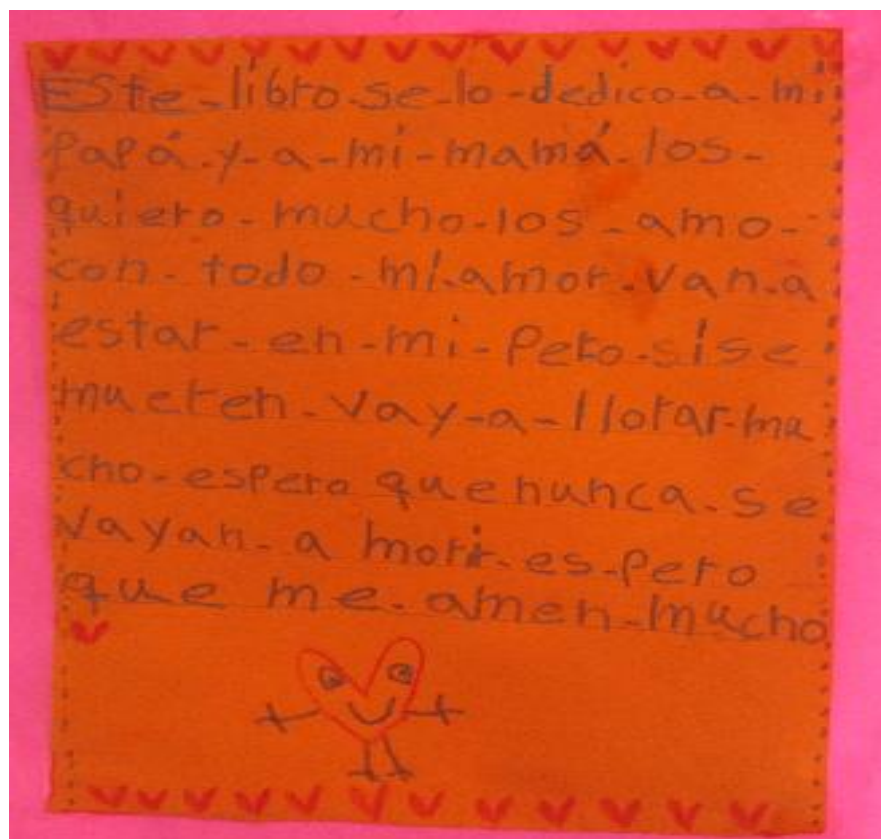 Este-libro-se-lo-dedico-a-mi
Papá-y-a-mi-mamá-los-
quiero-mucho-los-amo-
con-todo-mi-amor-van-a
estar-en-mi-Pero-síse
mueren-vay-a-llorar-mu
cho-espero quenunca-se
vayan-a morir-es-pero
que me-amen-mucho